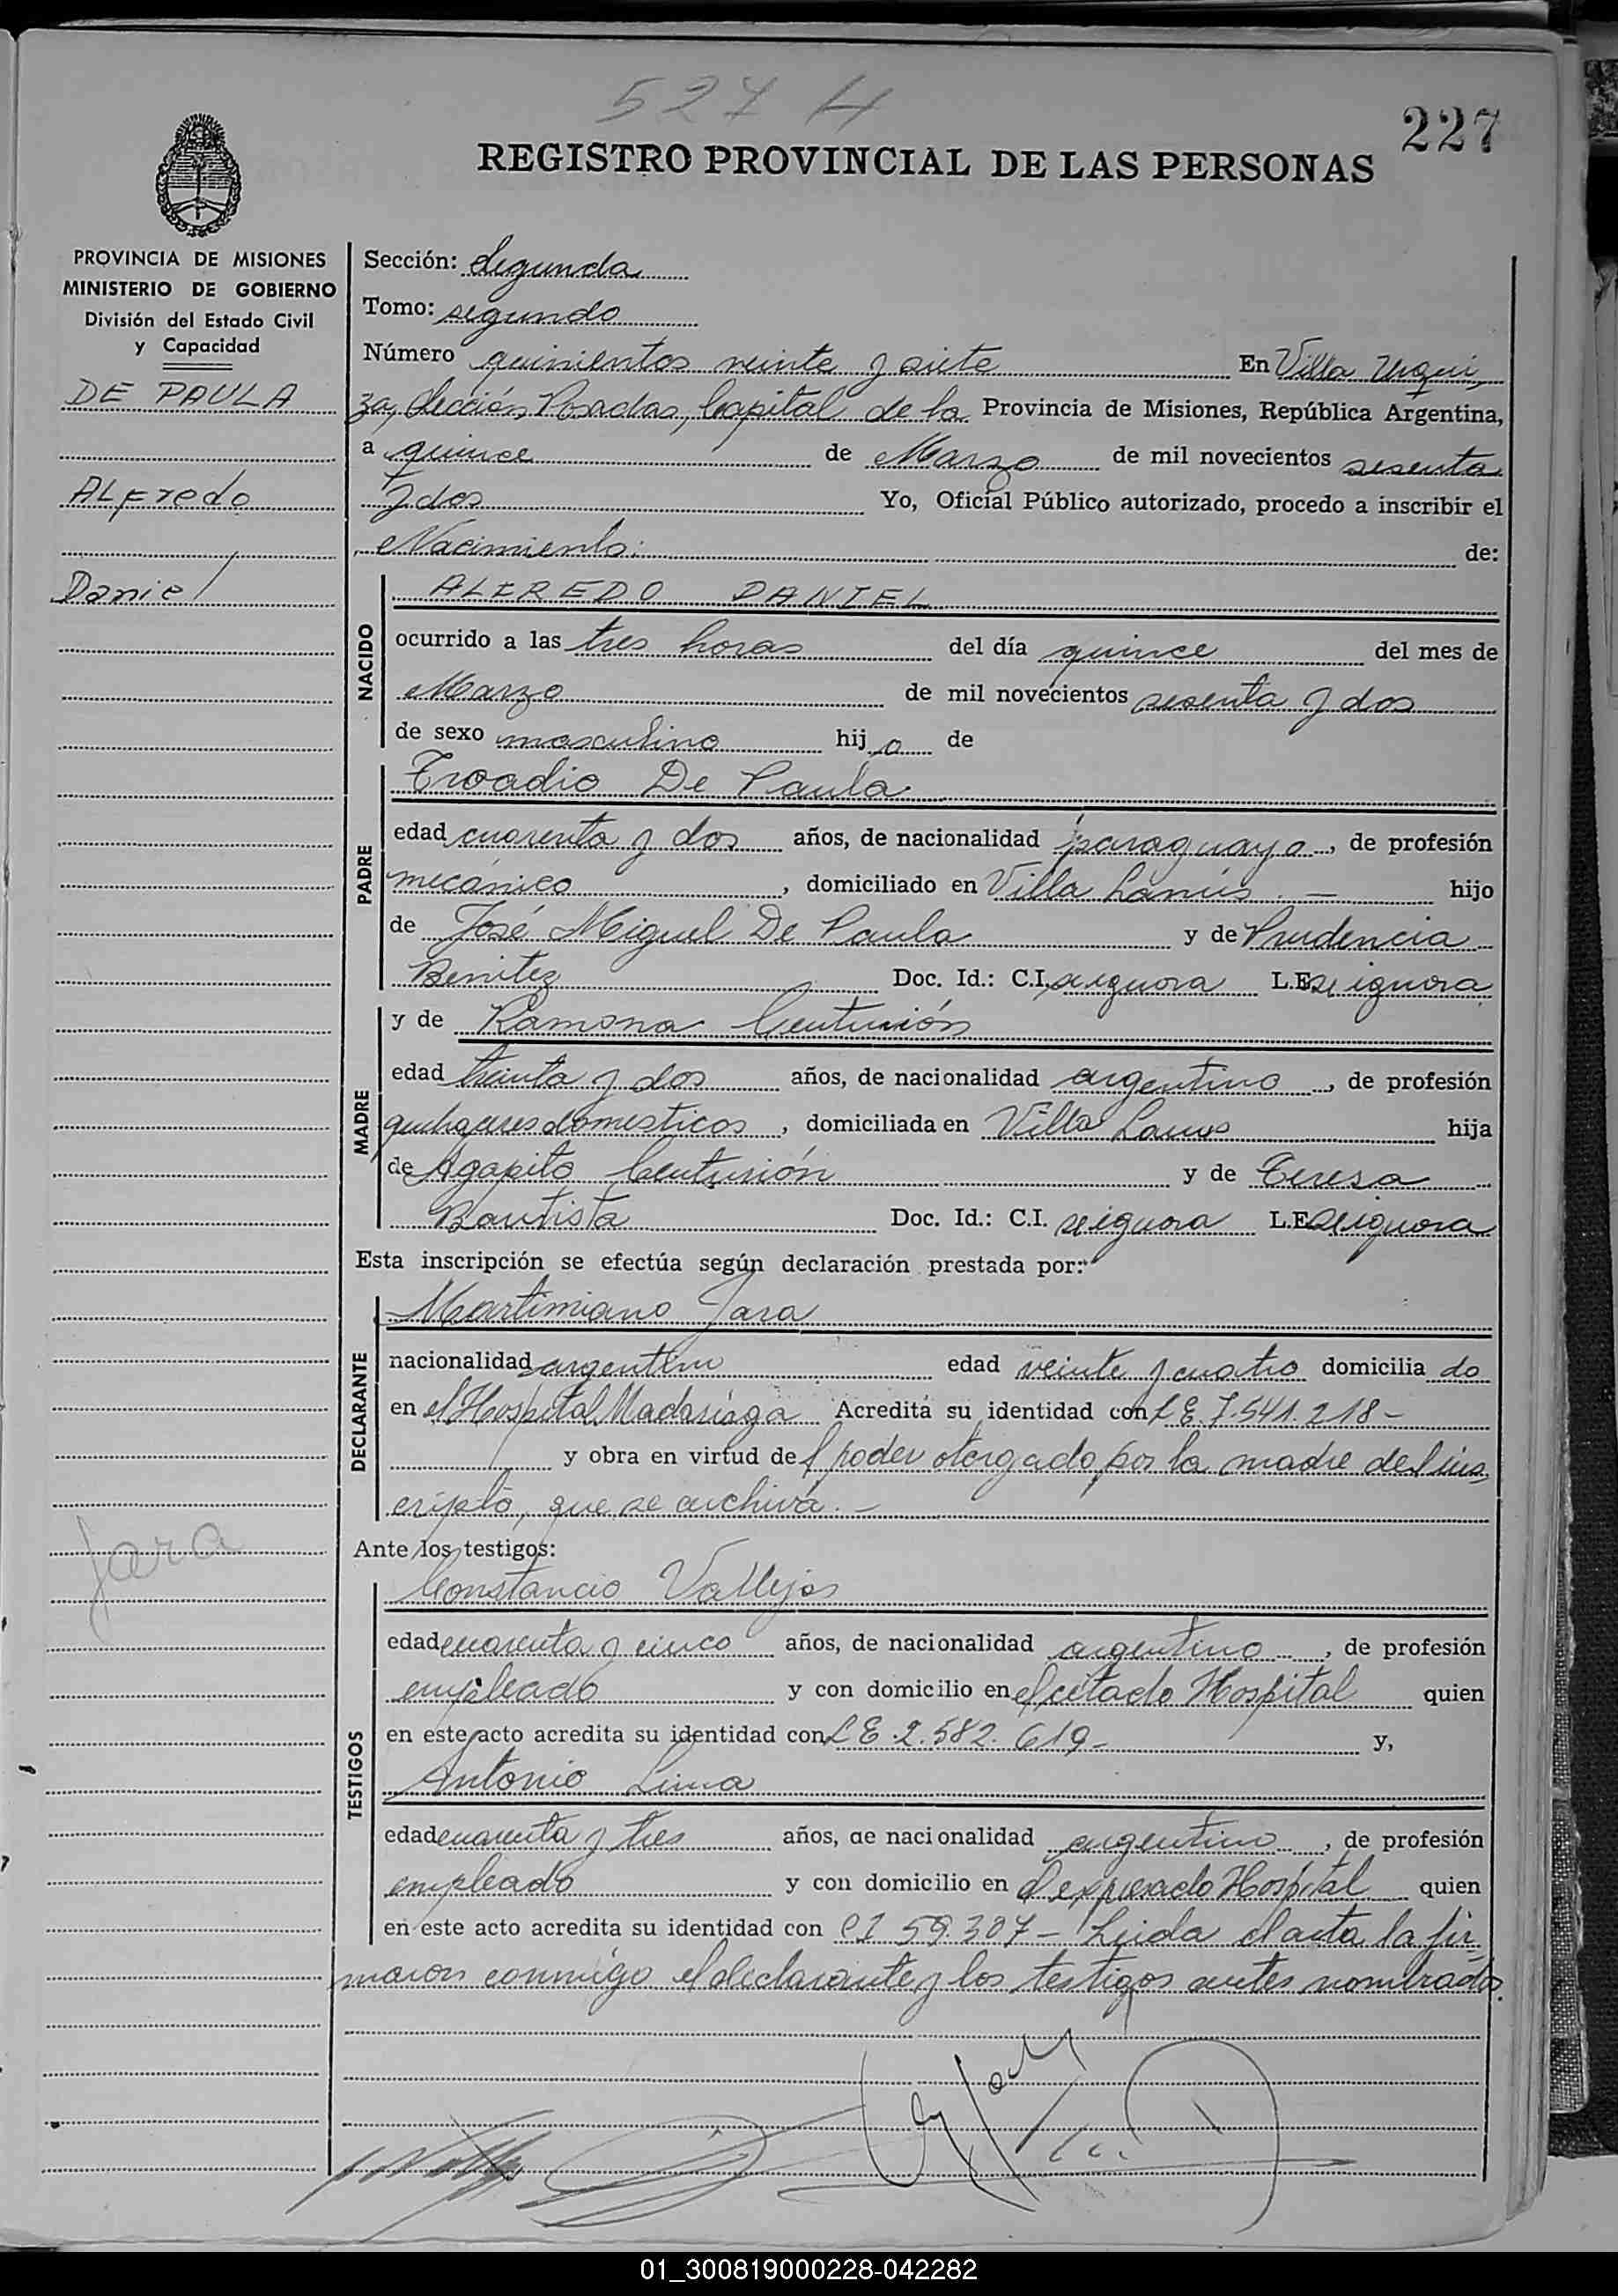 527 H
227
REGISTRO PROVINCIAL DE LAS PERSONAS
PROVINCIA DE MISIONES
MINISTERIO DE GOBIERNO
División del Estado Civil
y Capacidad
DE PAULA
ALFredo
Daniel
Jara
Sección: Segunda
Tomo: segundo
Número quinientos veinte y siete En Villa Urqui
za, Sección Posadas, Capital de la Provincia de Misiones, República Argentina,
a quince de Marzo de mil novecientos sesenta
y dos Yo, Oficial Público autorizado, procedo a inscribir el
Nacimiento: de:
NACIDO
ALFREDO DANIEL
ocurrido a las tres horas del día quince del mes de
Marzo de mil novecientos sesenta y dos
de sexo masculino hijo de
PADRE
Troadio De Paula
edad cuarenta y dos años, de nacionalidad paraguaya, de profesión
mecánico, domiciliado en Villa Lanús. — hijo
de José Miguel De Paula y de Prudencia
Benitez Doc. Id.: C.I. se ignora L.E. se ignora
MADRE
y de Ramona Centurión
edad treinta y dos años, de nacionalidad argentino, de profesión
quehaceres domesticos, domiciliada en Villa Lanus hija
de Agapito Centurión y de Teresa
Bautista Doc. Id.: C.I. se ignora L.E. se ignora
Esta inscripción se efectúa según declaración prestada por:
DECLARANTE
Martimiano Jara
nacionalidad argentino edad veinte y cuatro domicilia do
en el Hospital Madariaga Acredita su identidad con L E. 7.541.218-
y obra en virtud del poder otorgado por la madre del ins
cripto, que se archiva. -
Ante los testigos:
TESTIGOS
Constancio Vallejos
edad cuarenta y cinco años, de nacionalidad argentino, de profesión
empleado y con domicilio en el citado Hospital quien
en este acto acredita su identidad con L E. 2.582.619- y,
Antonio Lima
edad cuarenta y tres años, de nacionalidad argentino, de profesión
empleado y con domicilio en el expresado Hospital quien
en este acto acredita su identidad con C I 59.307 - Leida el acta la fir
maron conmigo el declarante y los testigos antes nombrados.
01_300819000228-042282